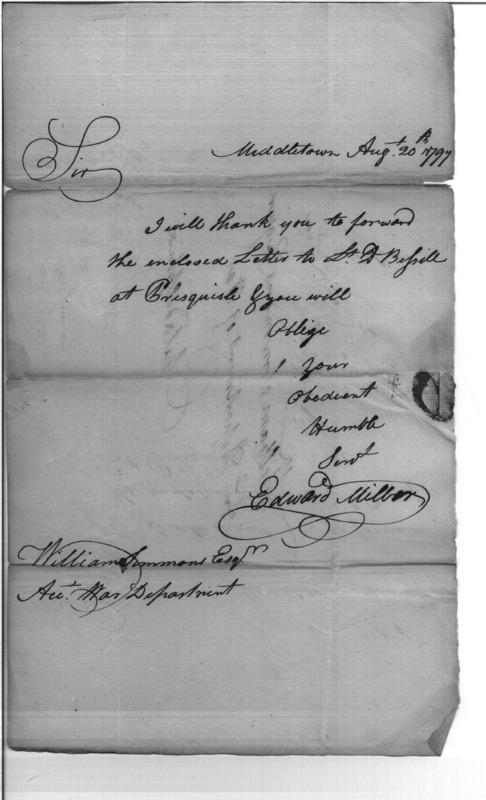 Middletown Augt. 20th 1797
Sir
I will thank you to forward
the enclosed Letter to Lt. D Bissill
at Presquisle & you will
Oblige
Your
Obedient
Humble
Servt
Edward Miller
William Simmons Esqr
Acct. War Department